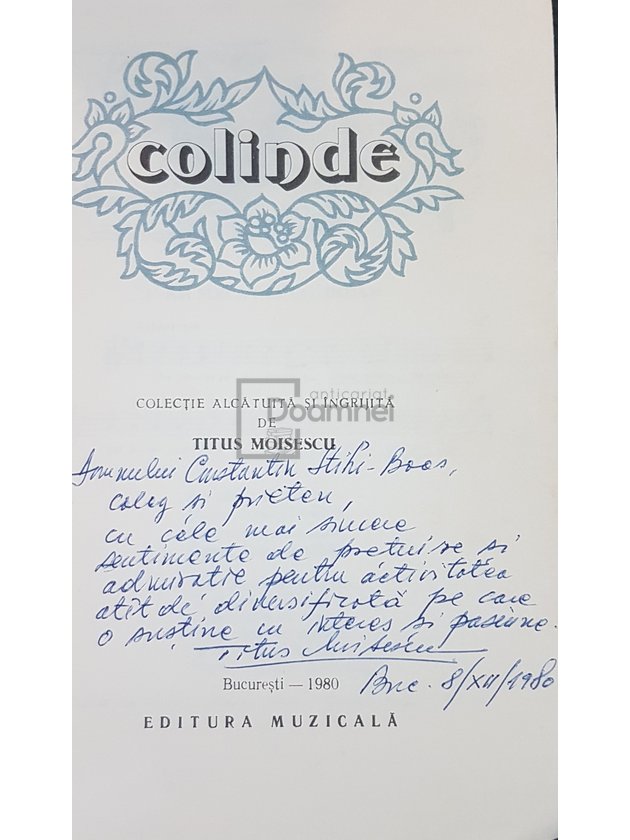 colinde
COLECȚIE ALCĂTUITĂ ȘI ÎNGRIJITĂ
anticariat
DE
Doamnei
TITUS MOISESCU
Domnului Constantin Stihi-Boos,
coleg si prieten,
cu cele mai sincere
sentimente de pretuire si
admiratie pentru activitatea
atît de diversificată pe care
o susține cu interes si pasiune.
Titus Moisescu
București — 1980
Buc. 8/XII/1980
EDITURA MUZICALĂ